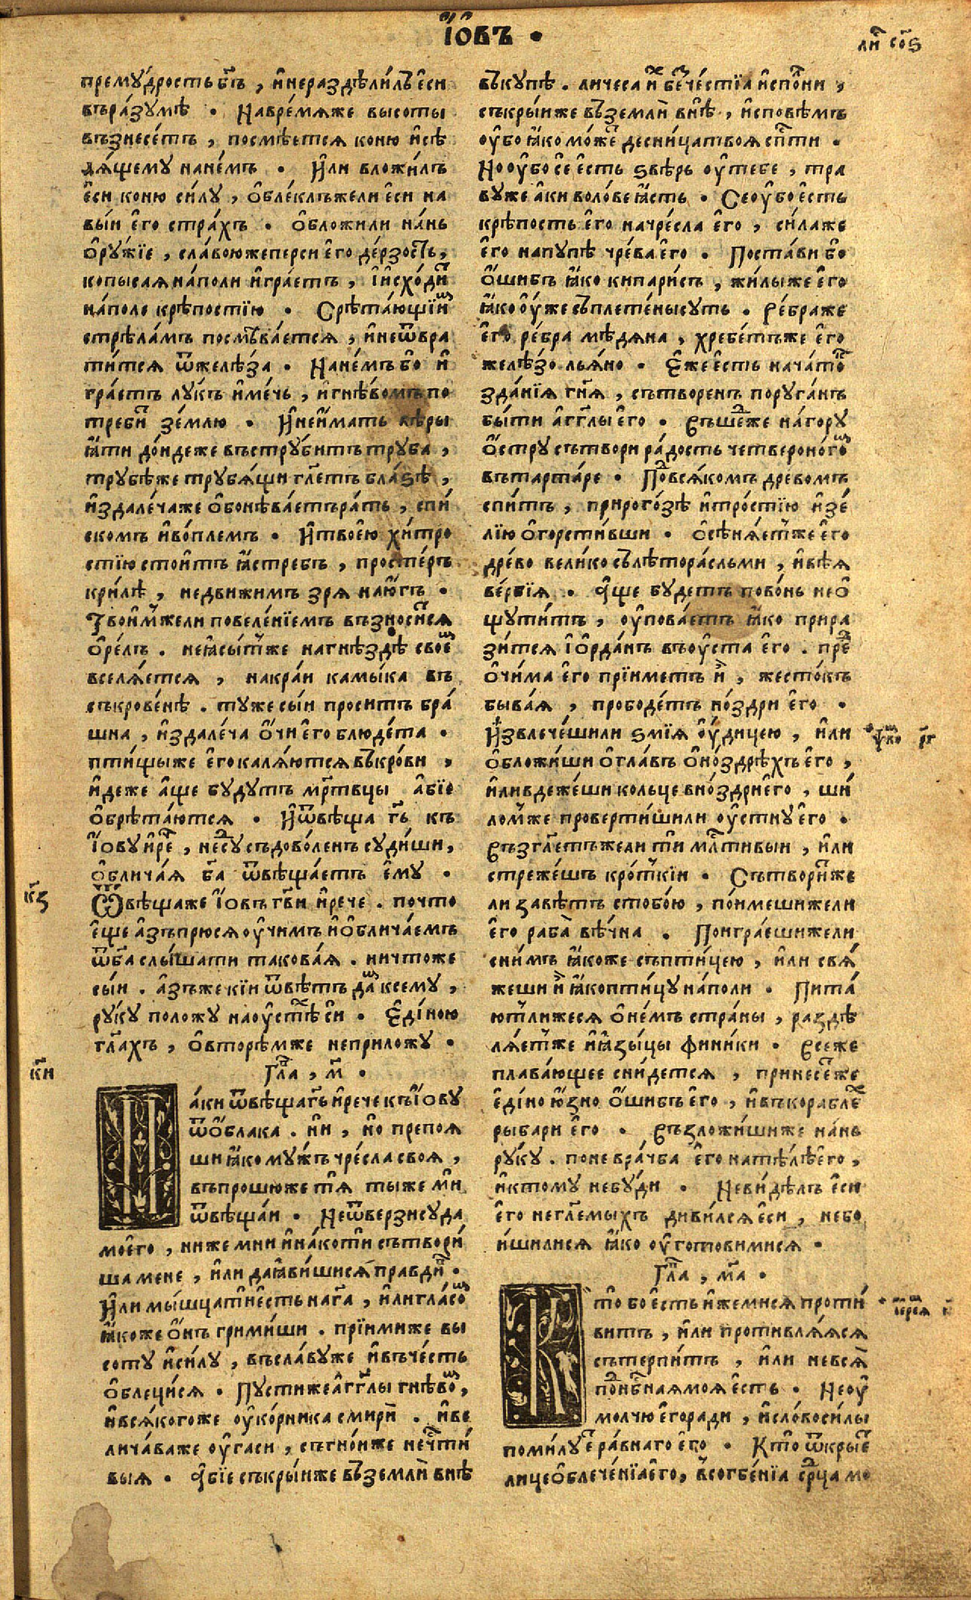 І҆ѡ҆въ .
прему́дрость бг҃ъ , и҆нераздѣли́лъ є҆си
въра́зумѣ . Навре́мѧже высоты
възнесе́тъ , посмѣе́тсѧ коню и҆сѣ
дѧ́щему нане́мъ . И҆ли вложи́лъ
є҆си коню си́лу , о҆бле́клъжели є҆си на
вы́и є҆го стра́хъ . о҆бложи́ли на́нь
о҆ру́жїе , сла́воюжеперси є҆го де́рзость ,
копы́саѧ на́поли и҆гра́етъ , и҆ исхо́дит
на́поле крѣ́постїю . Срѣта́ющїи
стрѣла́мъ посмѣва́етсѧ , и҆неѿвра
ти́тсѧ ѿжелѣ́за . Нане́мъ бо и҆
гра́етъ лу́къ и҆ме́чь , и҆гнѣ́вомъ по
треби́т зе́млю . И҆неи҆мать вѣ́ры
ꙗ҆ти до́ндеже въстру́битъ труба ,
трубѣ́же трубѧ́щи гл҃етъ бла́ѕѣ ,
и҆здале́чаже о҆бонѣва́етъ ра́ть , спи
скомъ и҆во́племъ . И҆твое́ю хи́тро
стїю стои́тъ ꙗ҆́стребъ , просте́ръ
кри́лѣ , недви́жимъ зрѧ наю҆́гъ .
Твои́мжели повеле́нїемъ възно́ситсѧ
о҆ре́лъ . неꙗ҆́сытже нагнѣздѣ свое́м
вселѧ́етсѧ , накра́и ка́мыка въ
съкрове́нѣ . ту́же сы́и про́ситъ бра́
шна , и҆здале́ча о҆чи є҆го блюде́та .
пти́щыже є҆го калѧ́ютсѧ въкро́ви ,
и҆де́же а҆ще бу́дутъ мр҃твцы а҆бїе
о҆брѣта́ютсѧ . И҆ѿвѣща гь҃ къ
І҆ѡву и҆рече , не су́дъ дово́ленъ суди́ши ,
о҆блича́ѧ бг҃а ѿвѣща́етъ є҆му .
Ѿвѣща́же І҆ѡвъ гв҃и и҆рече . почто
є҆ще а҆зъ прю́сѧ о҆учи́мъ и҆о҆блича́емъ
ѿбг҃а слы́шати такова́ѧ . ничто́же
сы́и . а҆зъже кїи ѿвѣтъ да́м ксему ,
ру́ку положу нао҆устѣ́х си . Є҆ди́ною
гл҃ахъ , о҆вторѣмже неприложу .
Гл҃а , м҃ .
Па́ки ѿвѣща́гь҃ и҆рече къ І҆ѡву
ѿо҆́блака . ни , но препоѧ
ши ꙗ҆ко му́жъ чре́сла своѧ ,
въпрошю́же тѧ ты́же ми
ѿвѣща́и . Неѿве́рзи суда
мое́го , ниже мни и҆на́ко ти сътвори́
ша мене , и҆ли да ꙗ҆ви́шисѧ пра́вдив .
И҆ли мы́шца ти є҆сть нага , и҆ли гла́сом
ꙗ҆ко́же о҆нъ грими́ши . прїими́же вы
соту и҆си́лу , въсла́вуже и҆въче́сть
о҆блеци́сѧ . Пусти́же а҆гг҃лы гнѣ́вом ,
и҆всѧ́кого́же о҆уко́рника смири . и҆ве
лича́ва́же о҆угаси , съгно́иже нечⷭ҇ти́
выѧ . А҆бїе съкры́иже въземлѝ внѣ
ли́ст со҃ѕ
въку́пѣ . личеса и҆х бесче́стїа и҆спо́лни ,
съкры́иже въземлѝ внѣ , и҆сповѣмъ
о҆убо ꙗ҆ко мо́жет десни́ца твоѧ сп҃сти .
Но о҆убо се є҆сть ѕвѣрь о҆утебе , тра
ву́же а҆ки воло́ве ꙗ҆сть . Се о҆убо є҆сть
крѣ́пость є҆го начре́сла є҆го , си́лаже
є҆го напу́пѣ чре́ва є҆го . Поста́ви бо
о҆́шибъ ꙗ҆ко кипари́съ , жи́лыже є҆го
ꙗ҆ко о҆уже съплете́ны суть . Ре́браже
є҆го ре́бра мѣ́дѧна , хребе́тъже є҆го
желѣ́зо льѧ́но . Є҆же є҆сть нача́то
зда́нїѧ гн҃ѧ , сътворе́нъ пору́ганъ
бы́ти а҆гг҃лы є҆го . Въше́дже на́гору
о҆́стру сътвори ра́дость четвероно́гом
въта́ртаре . По́двсѧ́комъ дре́вомъ
спи́тъ , при рого́зѣ и҆тро́стїю и҆зе́
лїю о҆горсти́вши . о҆сѣнѧ́етже є҆го
дре́во вели́ко съ лѣ́тора́сльми , и҆вѣ́ѧ
ве́рвїѧ . А҆ще бу́детъ пово́нь нео҆
щути́тъ , о҆упова́етъ ꙗ҆ко прира
зи́тсѧ І҆ѡрда́нъ въо҆уста є҆го . пред
о҆чима є҆го прїи́метъ и҆ , жесто́къ
быва́ѧ , прободе́тъ но́здри є҆го .
И҆звлече́шили ѕмїѧ о҆у́дицею , и҆ли
о҆бложи́ши о҆гла́въ о҆но́здрѣхъ є҆го ,
и҆ли вдеже́ши кольце вно́здри є҆го , ши
ломже проверти́шили о҆устну є҆го .
Възгл҃етъжели ти мл҃тивыи , и҆ли
стреже́ш кро́ткїи . Сътвори́тже
ли завѣ́тъ стобо́ю , по́имешижели
є҆го раба вѣ́чна . Поигра́ешижели
сни́мъ ꙗ҆коже съпти́цею , и҆ли свѧ́
жеши и҆ ꙗ҆копти́цу на́поли . Пита́
ютлижесѧ о҆не́мъ стра́ны , раздѣ
лѧ́етже и҆ ꙗ҆зы́цы фини́ки . Всеже
пла́вающее сни́детсѧ , принесе́тже
є҆ди́но ю҆́зно о҆́шибъ є҆го , и҆въкорабле́х
рыбари є҆го . Възложи́шиже на́нь
ру́ку . поне вра́чба є҆го натѣлѣ́є҆го ,
и҆ктому небу́ди . Неви́дѣлъ є҆си
є҆го негл҃емыхъ диви́лсѧ є҆си , небо
и҆ши́лисѧ ꙗ҆ко о҆угото́вимисѧ .
Гл҃а , ма҃ .
Кто бо є҆сть и҆жемисѧ проти́
витъ , и҆ли противлѧ́ѧсѧ
съте́рпитъ , и҆ли невсѧ
поднбⷭ҇наѧ моѧ є҆сть . Нео҆у
молчю є҆горади , и҆сло́во си́лы
поми́лует ра́внаго є҆го . Кто ѿкры́ет
лице о҆блече́нїа є҆го , всогбе́нїа ср҃ца мо
к҃з
к҃и